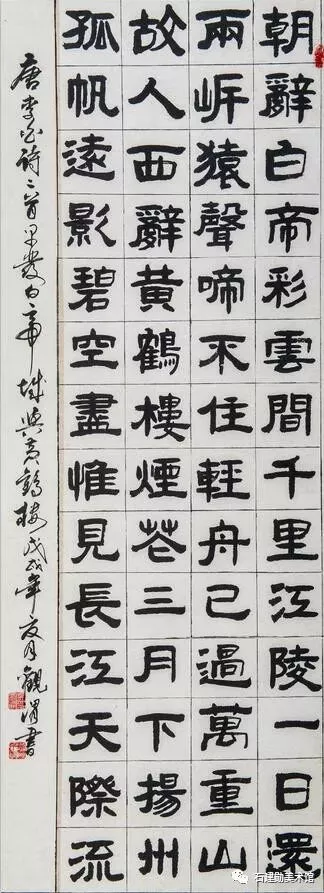 朝辭白帝彩雲間千里江陵一日還
兩岸猿聲啼不住輕舟已過萬重山
故人西辭黃鶴樓煙花三月下揚州
孤帆遠影碧空盡惟見長江天際流
唐李白詩二首早發白帝城與黃鶴樓戊戌年夏月觀渭書
石建勋美术馆